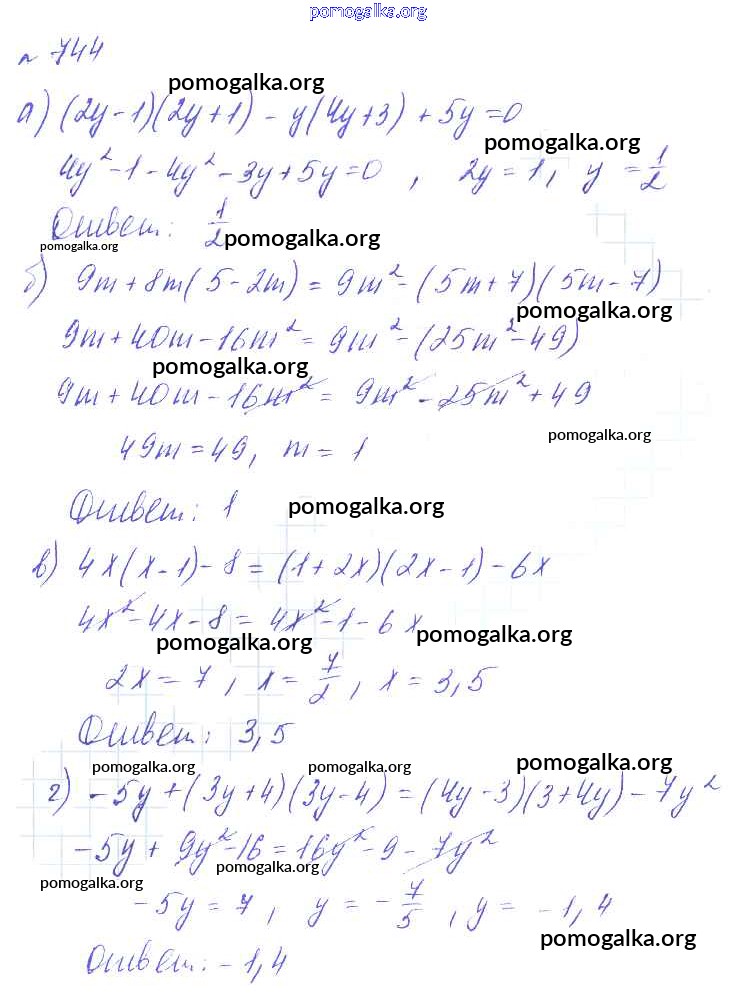 pomogalka.org
№ 744
pomogalka.org
а) (2y-1)(2y+1) - y(4y+3) + 5y=0
pomogalka.org
4y²-1-4y²-3y+5y=0, 2y=1, y=1/2
Ответ: 1/2
pomogalka.org pomogalka.org
б) 9m+8m(5-2m)=9m²-(5m+7)(5m-7)
pomogalka.org
9m+40m-16m²=9m²-(25m²-49)
pomogalka.org
9m+40m-16m²=9m²-25m²+49
pomogalka.org
49m=49, m=1
Ответ: 1
pomogalka.org
в) 4x(x-1)-8=(1+2x)(2x-1)-6x
4x²-4x-8=4x²-1-6x
pomogalka.org pomogalka.org
2x=7, x=7/2, x=3,5
Ответ: 3,5
pomogalka.org pomogalka.org pomogalka.org
г) -5y+(3y+4)(3y-4)=(4y-3)(3+4y)-7y²
-5y+9y²-16=16y²-9-7y²
pomogalka.org pomogalka.org
-5y=7, y=-7/5, y=-1,4
pomogalka.org
Ответ: -1,4